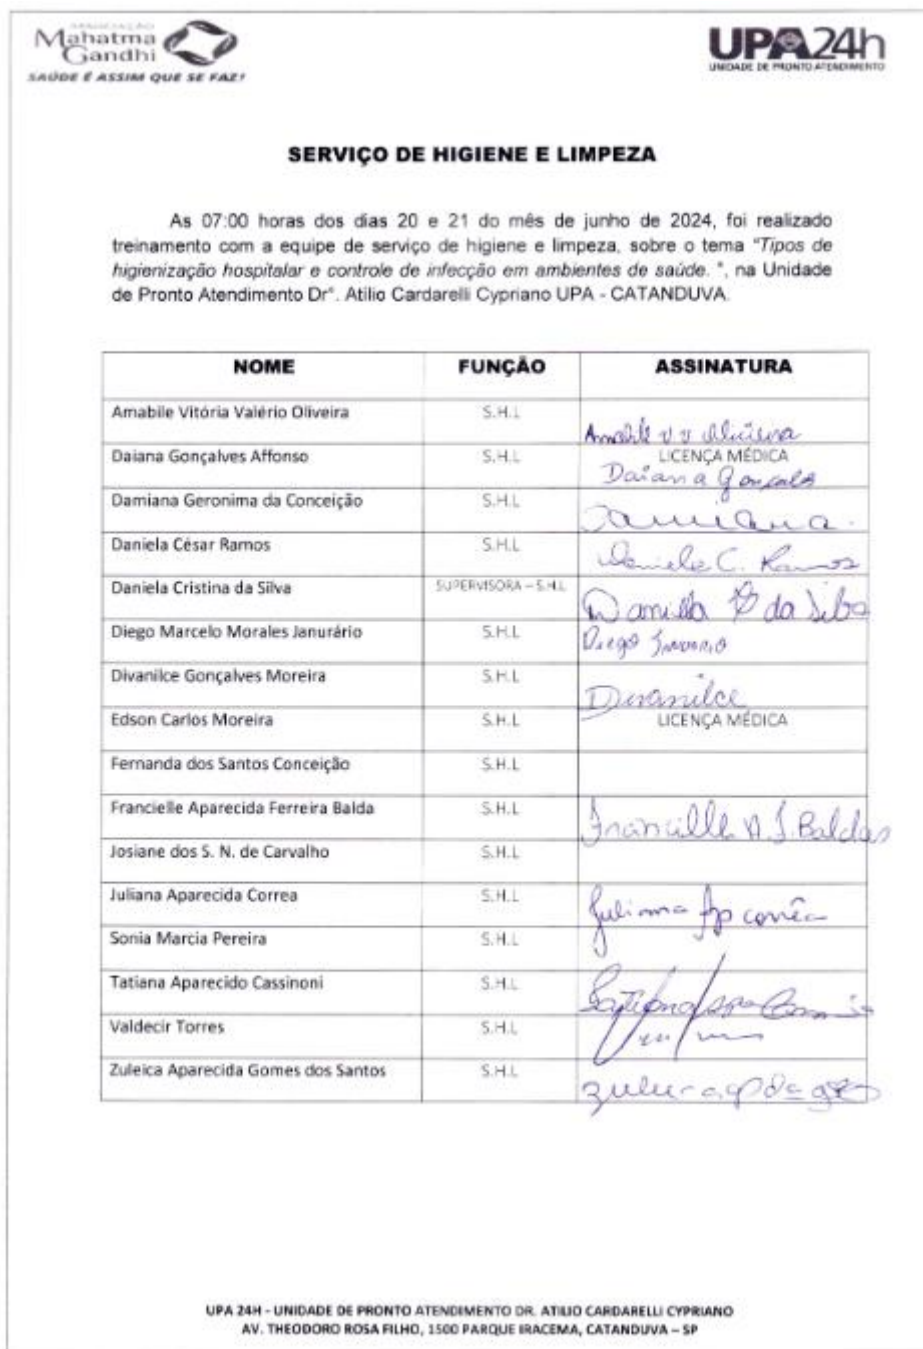 ASSOCIAÇÃO
Mahatma
Gandhi
SAÚDE É ASSIM QUE SE FAZ!
UPA24h
UNIDADE DE PRONTO ATENDIMENTO
SERVIÇO DE HIGIENE E LIMPEZA
As 07:00 horas dos dias 20 e 21 do mês de junho de 2024, foi realizado
treinamento com a equipe de serviço de higiene e limpeza, sobre o tema "Tipos de
higienização hospitalar e controle de infecção em ambientes de saúde. ", na Unidade
de Pronto Atendimento Dr°. Atilio Cardarelli Cypriano UPA - CATANDUVA.
NOME FUNÇÃO ASSINATURA
Amabile Vitória Valério Oliveira S.H.L Amabile v v Oliveira
Daiana Gonçalves Affonso S.H.L LICENÇA MÉDICA Daiana Gonçales
Damiana Geronima da Conceição S.H.L Damiana.
Daniela César Ramos S.H.L Daniela C. Ramos
Daniela Cristina da Silva SUPERVISORA – S.H.L da Silva
Diego Marcelo Morales Janurário S.H.L Diego
Divanilce Gonçalves Moreira S.H.L Divanilce
Edson Carlos Moreira S.H.L LICENÇA MÉDICA
Fernanda dos Santos Conceição S.H.L
Francielle Aparecida Ferreira Balda S.H.L Francielle A. F. Baldas
Josiane dos S. N. de Carvalho S.H.L
Juliana Aparecida Correa S.H.L Juliana Ap corrêa
Sonia Marcia Pereira S.H.L
Tatiana Aparecido Cassinoni S.H.L
Valdecir Torres S.H.L
Zuleica Aparecida Gomes dos Santos S.H.L
UPA 24H - UNIDADE DE PRONTO ATENDIMENTO DR. ATILIO CARDARELLI CYPRIANO
AV. THEODORO ROSA FILHO, 1500 PARQUE IRACEMA, CATANDUVA – SP